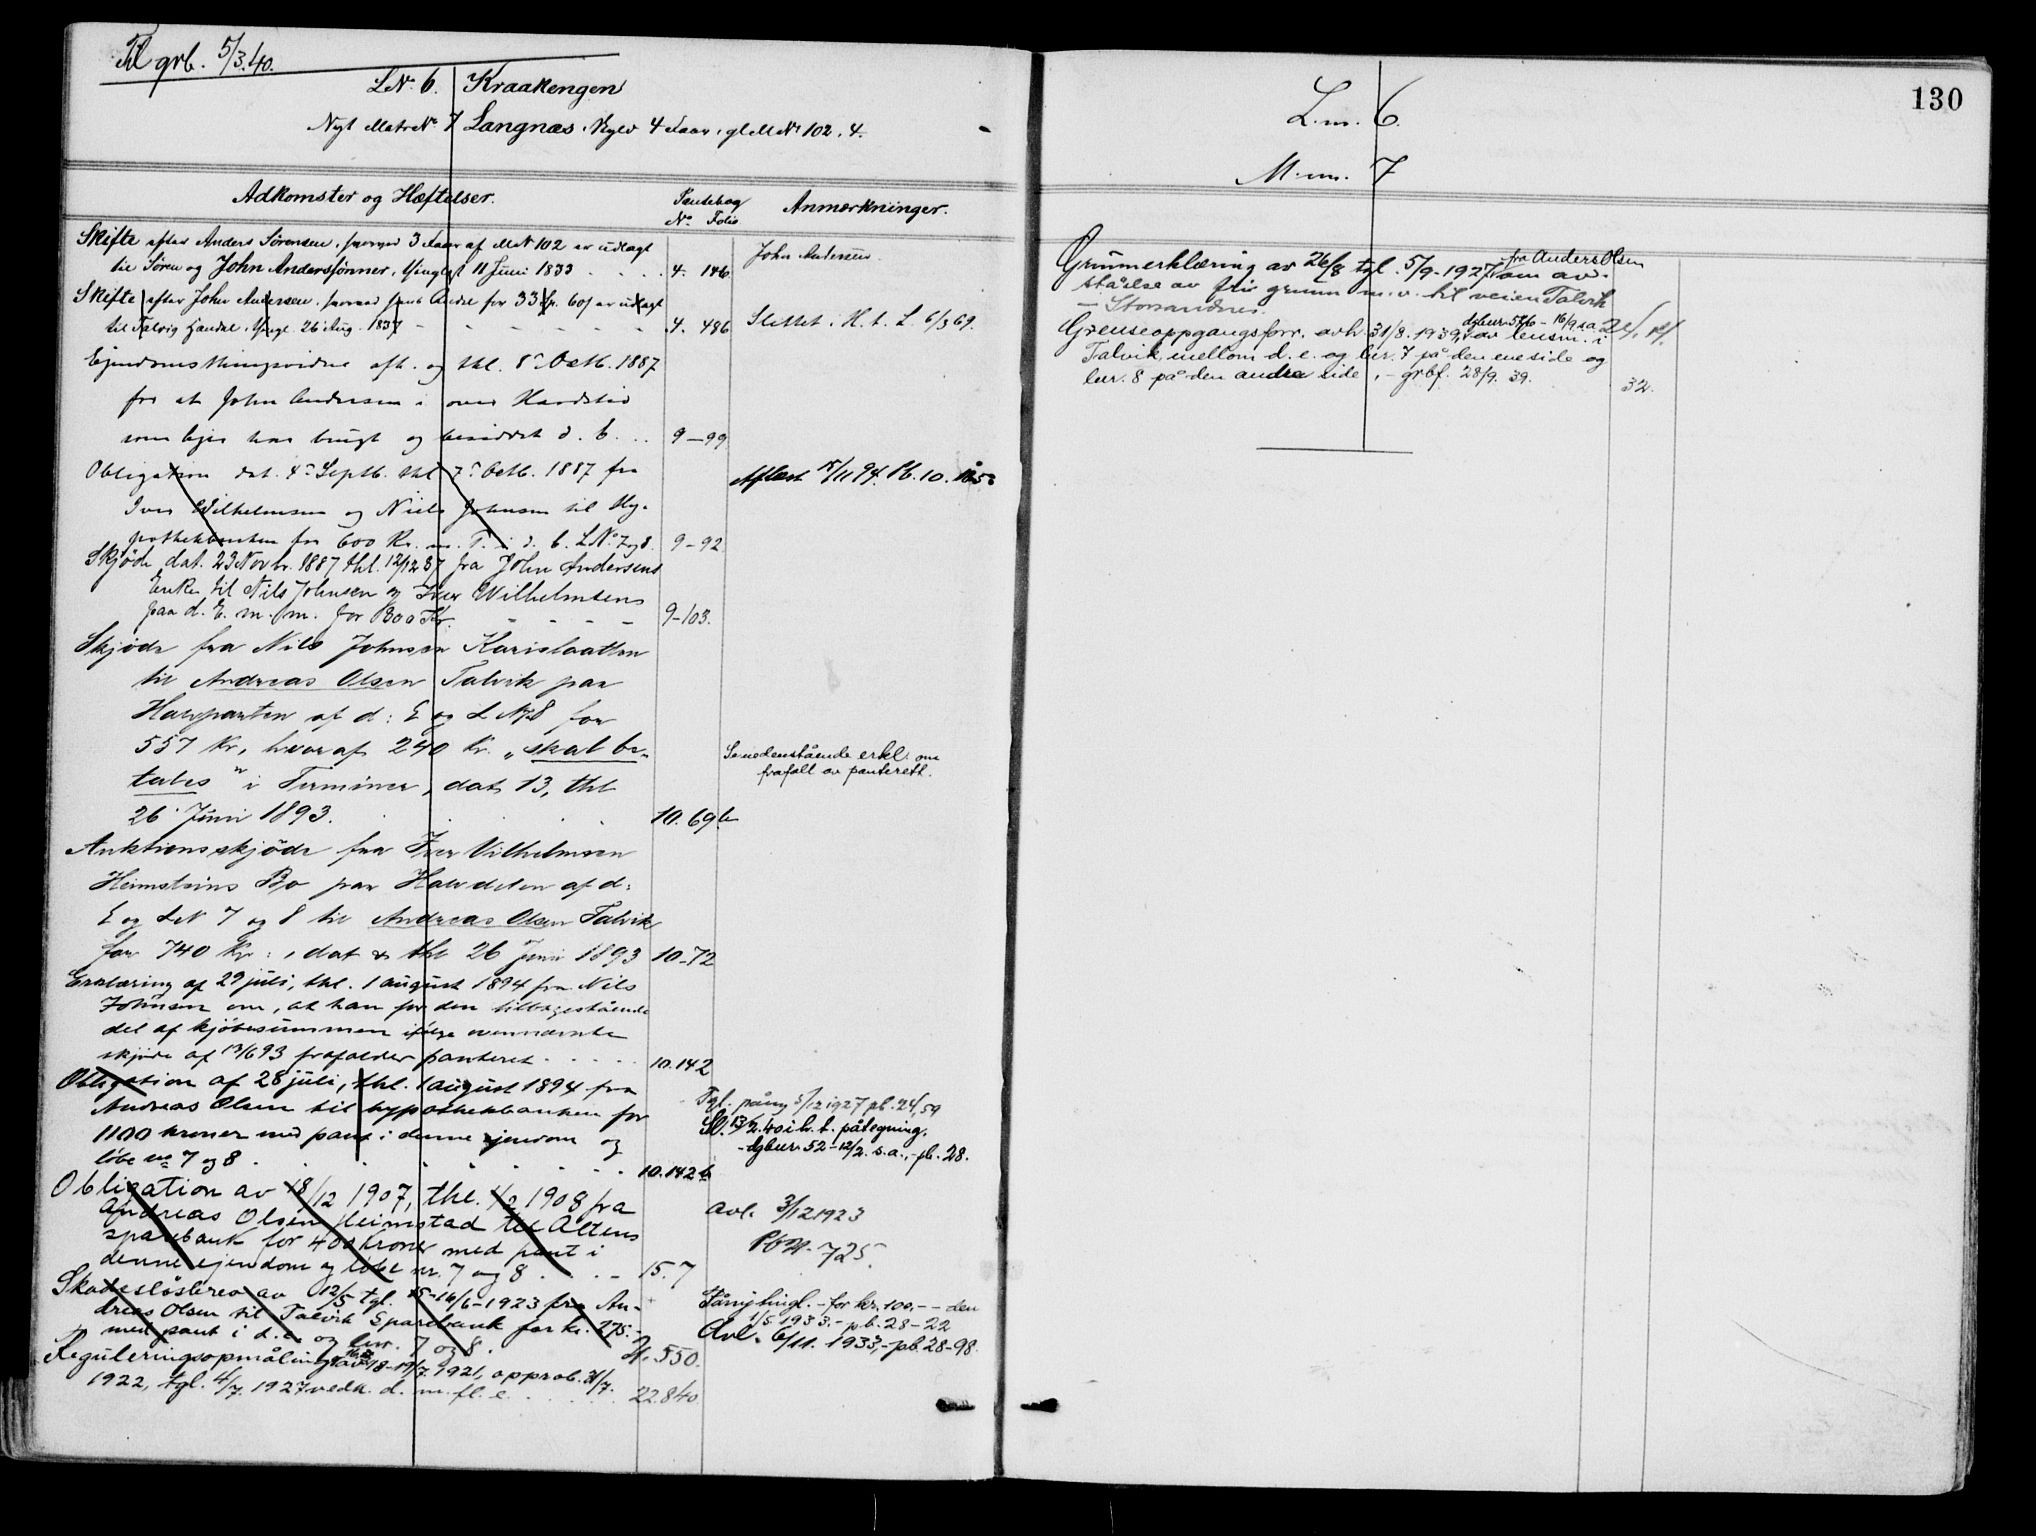 Til grb. 5/3.40.
LNr. 6. Kraakengen
Nyt MatrNr 7 Langnæs, Skyld 4 Faar, gl MNr 102, 4.
Adkomster og Hæftelser.
Pantebog
No Folio
Anmærkninger.
Skifte efter Anders Sørensen, hvorved 3 Faar af MN 102 er udlagt
til Søren og John Anderssønner, thinglyst 11 Juni 1833 4. 146
John Andersen.
Skifte efter John Andersen, hvorved Andel for 33 60 er udlagt
til Talvig Handel, thingl. 26 Aug. 1837 4. 486
Slettet i H. t. L. 6/3 69.
Ejendomsthingsvidne afh. og thl. 8de Octb. 1887
for at John Andersen i over Hævdstid
som Ejer har brugt og besiddet d. E. 9-99
Obligation dat. 4de Septb. thl 7de Octb. 1887 fra
Iver Wilhelmsen og Niels Johnsen til Hy-
pothekbanken for 600 Kr. m. P. i d. E. LNo 7 og 8. 9-92
Aflæst 15/11 94. Pb. 10.
Skjøde dat. 23 Novbr. 1887 thl. 12/12 87 fra John Andersens
Enke til Nils Johnsen og Iver Wilhelmsen
paa d. E. m. m. for 800 Kr. 9-103.
Skjøde fra Nils Johnsen Karislaatten
til Andreas Olsen Talvik paa
Halvparten af d: E og LN 7 8 for
557 Kr, hvoraf 240 Kr. "skal be-
tales" i Terminer, dat 13, thl
26 Juni 1893. 10. 69b
Se nedenstående erkl. om
frafall av panterett.
Auktionsskjøde fra Iver Vilhelmsen
Heimsteins Bo paa Halvdelen af d:
E og LN 7 og 8 til Andreas Olsen Talvik
for 740 Kr:, dat & thl 26 Juni 1893 10-72
Erklæring af 29 juli, thl. 1 august 1894 fra Nils
Johnsen om, at han for den tilbagestående
del af kjøbesummen ifølge ovennævnte
skjøde af 13/6 93 frafalder panteret 10.142
Obligation af 28 juli, thl. 1 august 1894 fra
Andreas Olsen til hypothekbanken for
1100 kroner med pant i denne ejendom og
løbe no 7 og 8 10.142b
Tgl. påny 5/12 1927 pb. 24, 59
Sl. 13/2.40 i h. t. påtegning.
-dgbnr. 52 - 12/2. s.a., - pb. 28.
Obligation av 18/12 1907, thl. 1/2 1908 fra
Andreas Olsen Heimstad til Altens
sparebank for 400 kroner med pant i
denne ejendom og løbe nr. 7 og 8 15. 7
avl. 3/12 1923
Pb 21. 725.
Skadesløsbrev av 12/5 tgl. 15-16/6-1923 fra An-
dreas Olsen til Talvik Sparebank for kr. 275.-
med pant i d.e. og lnr. 7 og 8. 21. 550.
Pånytingl. - for kr. 100,- - den
1/5 1933. - pb. 28-22
Avl. 6/11. 1933, - pb. 28-98.
Reguleringsopmåling av 18-19/7 1921, approb. 31/7.
1922, tgl. 4/7. 1927 vedk. d. m. fl. e. 22.840
130
L.nr. 6.
M.nr. 7
Grunnerklæring av 26/8 tgl. 5/9-1927 fra Anders Olsen om av-
ståelse av fri grunn m.v. til veien Talvik
- Storsandnes.
Grenseoppgangsforr. avh. 31/8. 1939, dgbnr. 576 - 16/9 s.a. av lensm. i
Talvik mellom d. e. og lnr. 7 på den ene side og
lnr. 8 på den andre side, - grbf. 28/9. 39. 32.